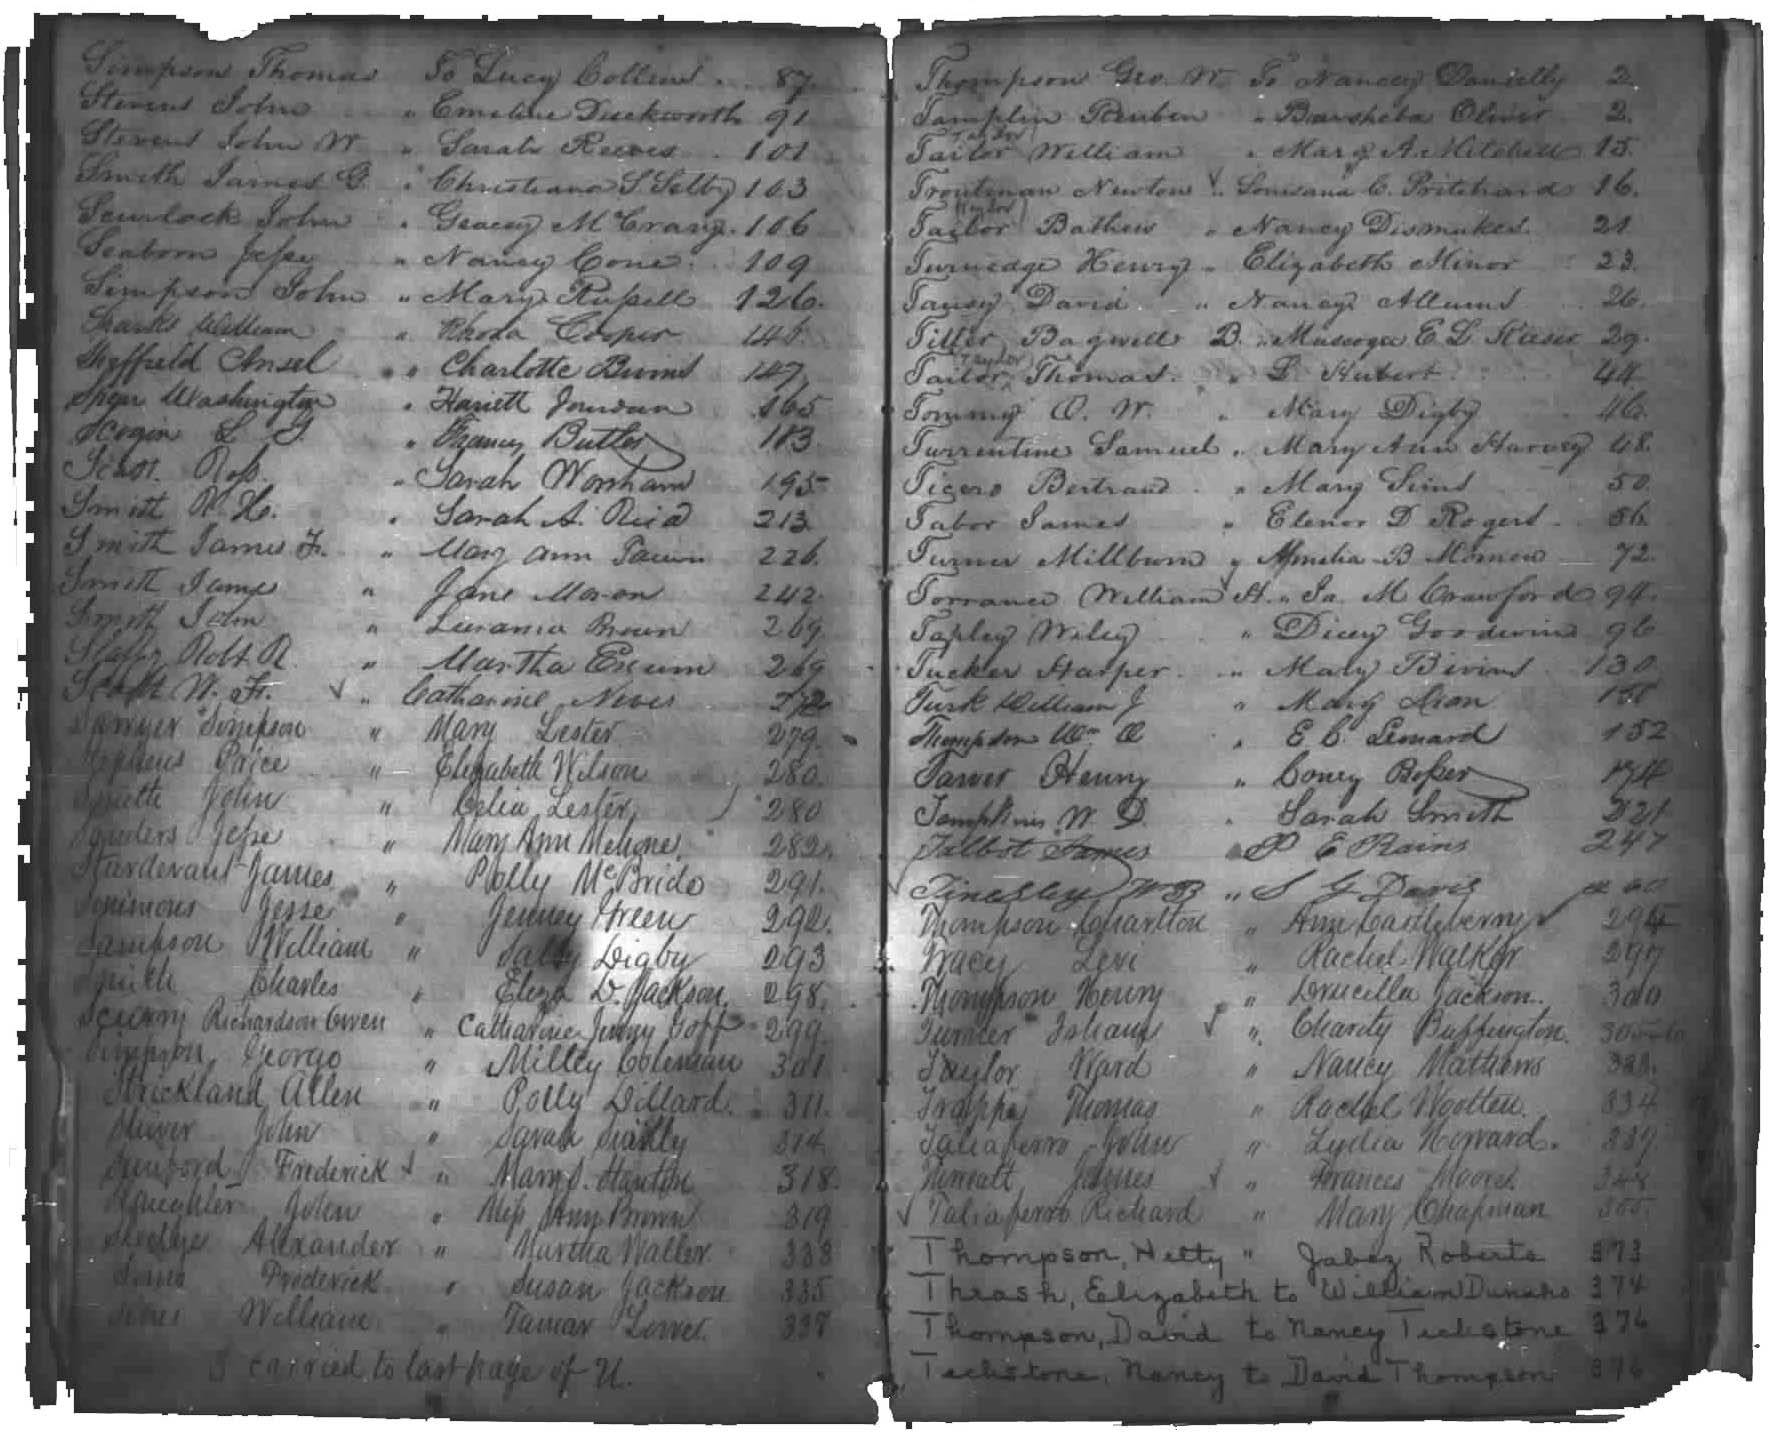 Simpson Thomas To Lucy Collins 87
Stevens John " Emeline Duckworth 91
Stevens John W " Sarah Reeves 101
Smith James G. " Christiana S Selby 103
Scurlock John " Gracey McCrary 106
Seaborn Jesse " Nancy Cone 109
Simpson John " Mary Russell 126
Sparks William " Rhoda Cooper
Sheffield Ansel " Charlotte Bivins 147
Spear Washington " Hariett Jourdan 165
Scogin L G " Francy Butler 183
Scott Ross " Sarah Worsham 195
Smith R. H. " Sarah A. Reid 213
Smith James Fr. " Mary Ann 226
Smith James " Jane Moron 242
Smith John " Lurania Brown 269
Robt R " Martha Exum 269
Scott W. Fr. " Catharine Nives 272
Sawyer Simpson " Mary Lester 279
Stephens Price " Elizabeth Wilson 280
Smith John " Celia Lester 280
Sanders Jesse " Mary Ann Mehone 282
Stardevant James " Polly McBride 291
Simmons Jesse " Jenney Green 292
Sampson William " Sally Digby 293
Smith Charles " Eliza D. Jackson 298
Scurry Richardson Owen " Catharine Jenny Goff 299
Simpson George " Milley Coleman 301
Strickland Allen " Polly Dillard 311
John " Sarah 314
Sanford Frederick " Mary S. Hanton 318
Slaughter John " Miss Amy Brown 319
Sledge Alexander " Martha Waller 333
Sims Frederick " Susan Jackson 335
Sims William " Tamar Lovet 337
S carried to last page of U.
Thompson Geo. W. To Nancy Danielly 2
Tamplin Reuben " Barsheba Oliver 2
Taylor
Tailor William " Mary A. Mitchell 15
Troutman Newton " Louisana C. Pritchard 16
Taylor
Tailor Bathew " Nancy Dismukes 21
Turnedge Henry " Elizabeth Minor 23
Tansy David " Nancy Allums 26
Tiller Bagwell B. " Muscogee E L Reese 29
Taylor
Tailor Thomas " L Hubert 44
Tommy O. W. " Mary Digby 46
Turrentine Samuel " Mary Ann Harvey 48
Tigero Bertrand " Mary Sims 50
Tabor James " Elenor D Rogers 56
Turner Millburn " Amelia B Morrow 72
Torrance William H. " Ja. M Crawford 94
Tapley Wiley " Dicey Goodwin 96
Tucker Harper " Mary Bivins 130
Turk William J " Mary Lion
Thompson Wm O " E C Leonard 152
Tarver Henry " Coney Bosser 174
Tompkins W. D. " Sarah Smith 221
Talbot James " P E Rains 247
Tinesley W B " S G Davis
Thompson Charlton " Ann Castleberry 294
Tracy Levi " Rachel Walker 297
Thompson Henry " Drucilla Jackson 300
Turner Isham " Charity Buffington
Taylor Ward " Nancy Mathews
Trappe Thomas " Rachel Wootten 334
Taliaferro John " Lydia Howard 339
James " Frances Moore 348
Taliaferro Richard " Mary Chapman 355
Thompson, Hetty " Jabez Roberts 373
Thrash, Elizabeth to William Dunaho 374
Thompson, David to Nancy Teckstone 376
Teckstone, Nancy to David Thompson 376